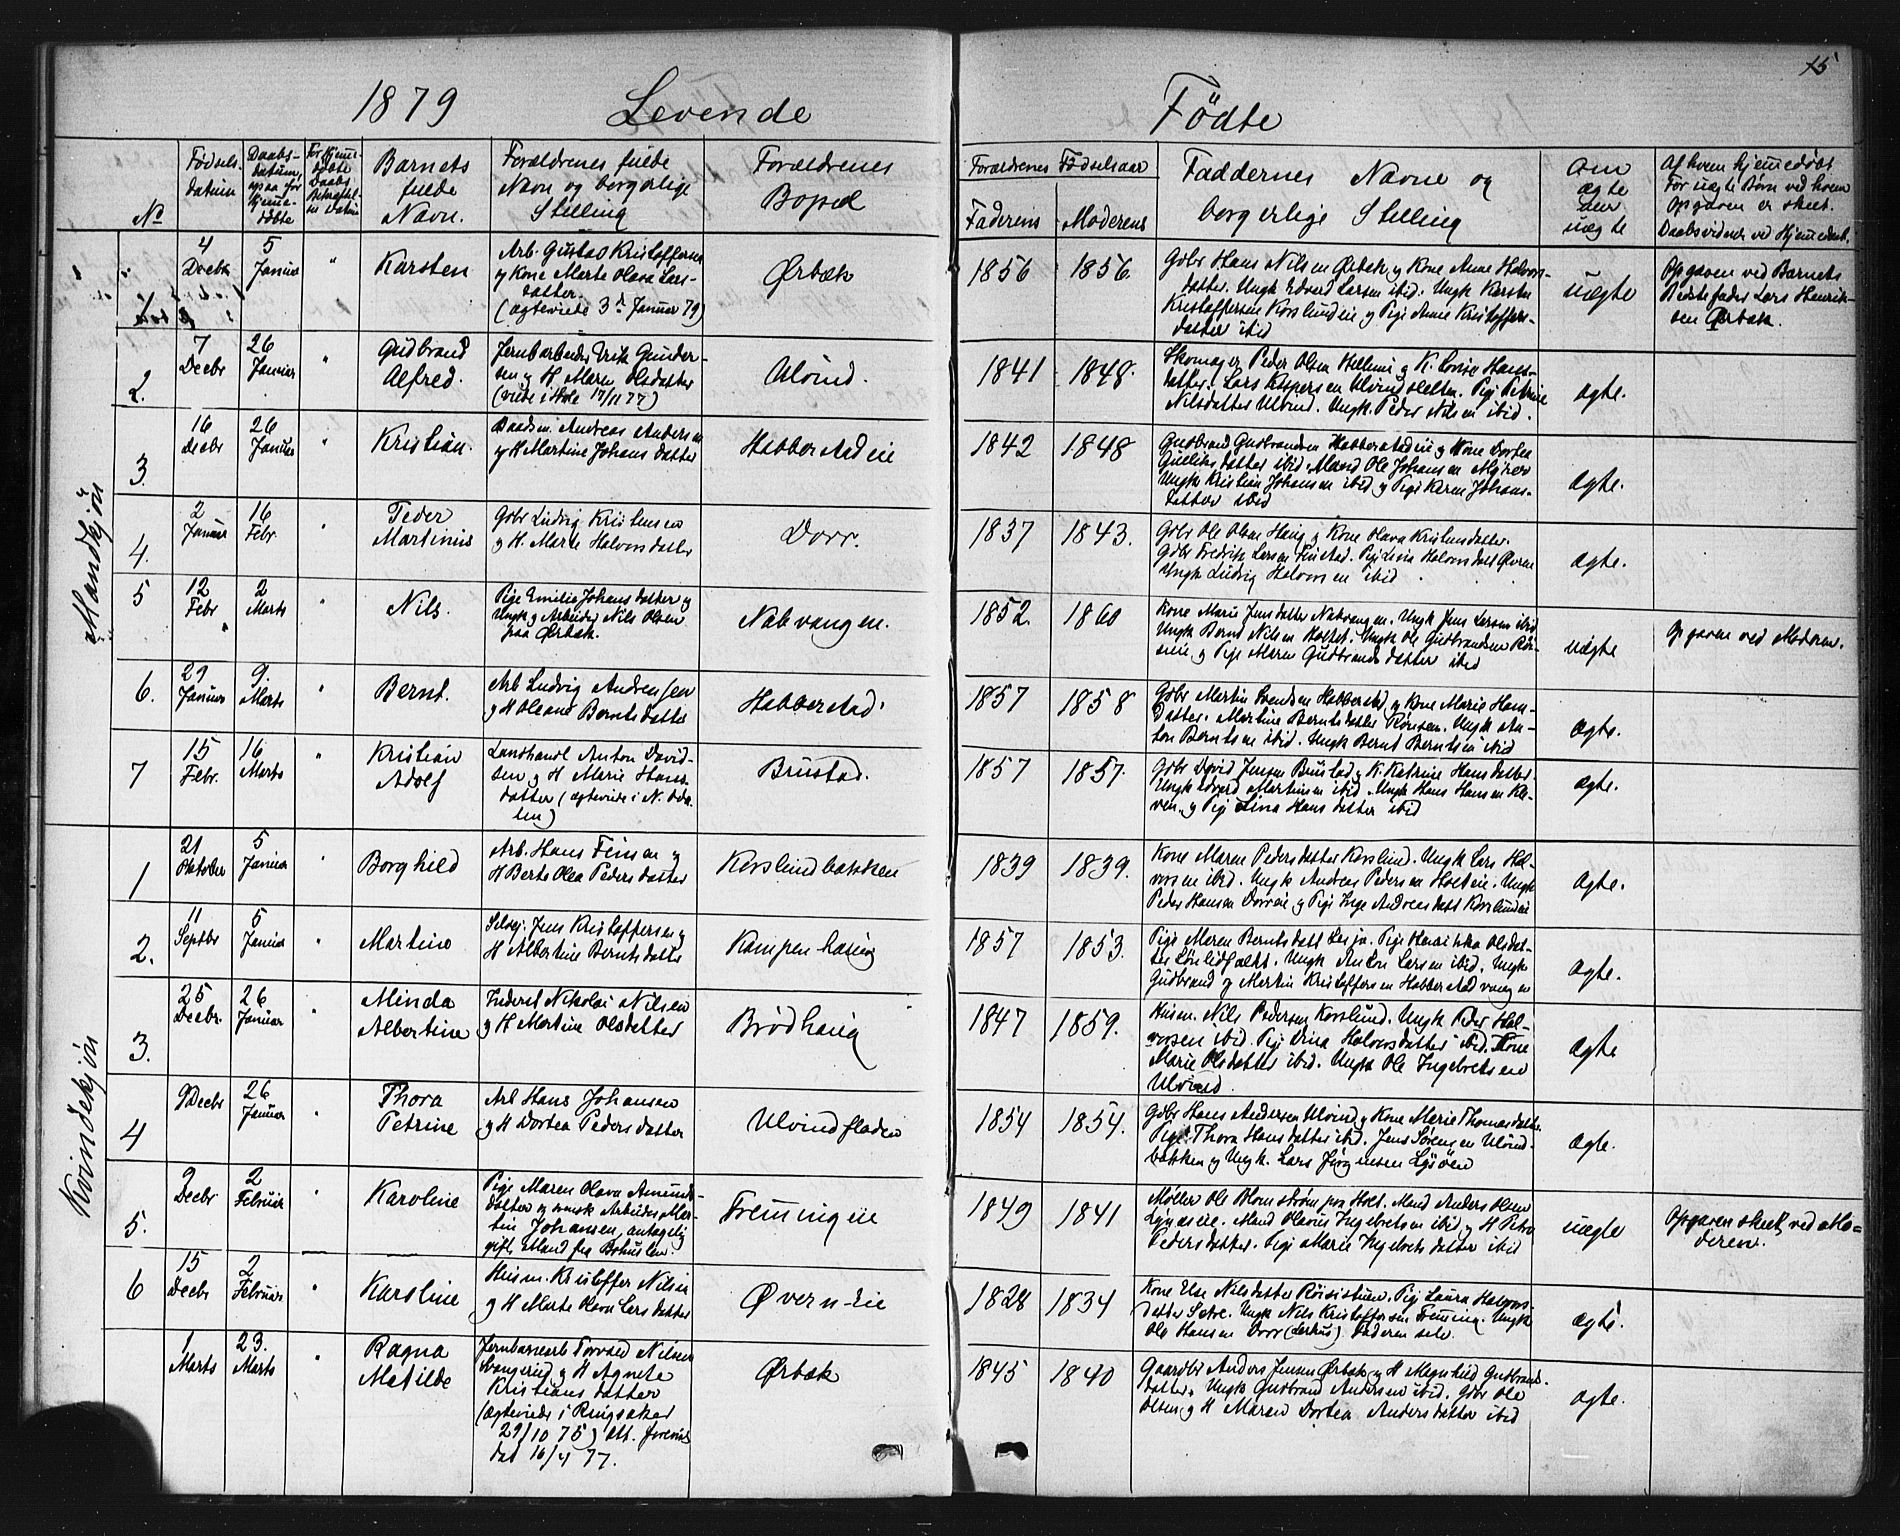 15
1879 Levende Födte
No
Födsels datum
Daabs- datum, ogsaa for hjeme- döbte
For hjeme- döbte Daabs Bekræftel- ses Datum
Barnets fulde Navn.
Forældrenes fulde Navn og borgerlige Stilling
Forældrenes Bopæl
Forældrenes Fødselsaar
Faderens Moderens
Faddernes Navne og borgerlige Stilling
Om ægte eller uægte
Af hvem hjemedøbt
For uægte Børn ved hvem
Opgaven er skeet.
Daabsvidner ved Hjemedaab.
Mandkjön
4 Decbr
5 Januar
"
Karsten
Arb. Gustav Kristoffersen
og Kone Marte Olava Lars-
datter.
(ægteviede 3d Januar 79)
Ørbæk
1856 1856
Gdbr Hans Nilsen Ørbæk og Kone Anne Halvors-
datter. Ungk Edvard Larsen ibid. Ungk Karsten
Kristoffersen Korslundeie og Pige Anne Kristoffers-
datter ibid
uægte
Opgaven ved Barnets
Bedstefader Lars Henrik-
sen Ørbæk.
2.
7 Decbr
26 Januar
"
Gudbrand
Alfred.
Jernbarbeider Erik Gunder-
sen og H. Maren Olsdatter
(viede i Hole 17/11 77)
Ulvind.
1841 1848.
Skomager Peder Olsen Hellum og K. Lovise Hans-
datter. Lars Kaspersen Ulvindsletten. Pige Petrine
Nilsdatter Ulvind. Ungk. Peder Nilsen ibid.
ægte.
3.
16 Decbr
26 Januar
"
Kristian.
Baadsm. Andreas Andersen
og H Martine Johansdatter
Habberstadeie
1842 1848
Gudbrand Gudbrandsen Habberstadeie og Kone Dortea
datter ibid. Mand Ole Johansen
Ungk Kristian Johansen ibid og Pige Karen Johans-
datter ibid
ægte.
4.
2 Januar
16 Febr.
"
Peder
Martinus
Gdbr Ludvig Kristensen
og H. Marte Halvorsdatter
Dorr.
1837 1843.
Gdbr Ole Olsen Haug og Kone Olava Kristensdatter.
Gdbr Fredrik Larsen Finstad. Pige Lina Halvorsdatt Øvren
Ungk Ludvig Halvorsen ibid
ægte.
5
12 Febr
2 Marts
"
Nils.
Pige Emilie Johansdatter og
Ungk og Arbeider Nils Olsen
paa Ørbæk.
Nabvangen.
1852. 1860
Kone Marie Jensdatter Nabvangen. Ungk Jens Larsen ibid
Ungk Bernt Nilsen Holtet. Ungk Ole Gudbrandsen Røi-
seie og Pige Maren Gudbrandsdatter ibid
uægte
Opgaven ved Moderen.
6.
29 Januar
9. Marts
"
Bernt.
Arb Ludvig Andreasen
og H Oleane Berntsdatter
Habberstad.
1857 1858
Gdbr Martin Svendsen Habberstad og Kone Marie Hans-
datter. Martine Berntsdatter Rønsen. Ungk An-
ton Berntsen ibid. Ungk Bernt Berntsen ibid
ægte.
7
15 Febr.
16 Marts
"
Kristian
Adolf
Landhandl Anton David-
sen og H Marie Hans-
datter (ægteviede i N. Oda-
len)
Brustad.
1857 1857.
Gdbr David Jensen Brustad og K. Katrine Hansdatter
Ungk Edvard Martinsen ibid. Ungk Hans Hansen Kle-
ven og Pige Lina Hansdatter ibid
ægte.
Kvindekjön
1
21 Oktober
5 Januar
"
Borghild
Arb. Hans Finsen og
H Berte Olea Pedersdatter
Korslundbakken
1839 1839.
Kone Maren Pedersdatter Korslund. Ungk Lars Hal-
vorsen ibid. Ungk Andreas Pedersen Holteie. Ungk
Peder Hansen Dorreie og Pige Inge Andreasdatt Korslundeie
ægte.
2.
11 Septbr
5 Januar
"
Martine
Selvej. Jens Kristoffersen og
H Albertine Berntsdatter
Kampenhaug
1857 1853.
Pige Maren Berntsdatt Lesja. Pige Henrikka Olsdat-
ter Ungk Anton Larsen ibid. Ungk
Gudbrand og Martin Kristoffersen Habberstadvangen
ægte.
3.
25 Decbr.
26 Januar
"
Minda
Albertine
Inderst Nikolai Nilsen
og H Martine Olsdatter
Brødhaug
1847 1859.
Husm. Nils Pedersen Korslund. Ungk Peder Hal-
vorsen ibid. Pige Dina Halvorsdatter ibid. Kone
Marie Olsdatter ibid. Ungk Ole Ingebretsen
Ulvind
ægte
4
9 Decbr
26 Januar
"
Thora
Petrine
Arb Hans Johansen
og H Dortea Pedersdatter
Ulvindfladen
1854 1854.
Gdbr Hans Andersen Ulvind og Kone Marie Thomasdatter.
Pige Thora Hansdatter ibid. Jens Sørensen Ulvind-
bakken og Ungk. Lars Jørgensen Lysøen
ægte.
5.
9 Decbr
2 Februar
"
Karoline
Pige Maren Olava Amunds-
datter og svensk Arbeider Mar-
tin Johansen, antagelig
gift Mand fra Bohuslen.
Fremmingeie
1849 1841
Møller Ole Blomstrøm paa Holt. Mand Anders Olsen
Lynæseie. Mand Olaus Ingebretsen ibid og H Petra
Pedersdatter. Pige Marie Ingebretsdatter ibid
uægte
Opgaven skeet ved Mo-
deren.
6
15 Decbr
2 Februar
"
Karoline
Husm. Kristoffer Nilsen
og H Marte Olava Larsdatter
Øvern-eie
1828 1834
Kone Else Nilsdatter Røisistuen. Pige Laura Halvors-
datter Sætre. Ungk Nils Kristoffersen Fremming. Ungk
Ole Hansen Dorr (Lerhus) Faderen selv.
ægte.
1 Marts
23. Marts
"
Ragna
Matilde
Jernbanearb Torvald Nilsen
Svangerud og H Agnete
Kristiansdatter
(ægteviede i Ringsaker
29/10 75) Att. forevist
dat 16/4 77.
Ørbæk
1845 1840
Gaardbr Anders Jensen Ørbæk og H Magnhild Gudbrands-
datter. Ungk Gudbrand Andersen ibid. Gdbr Ole
Olsen og H Maren Dortea Andersdatter ibid
ægte.